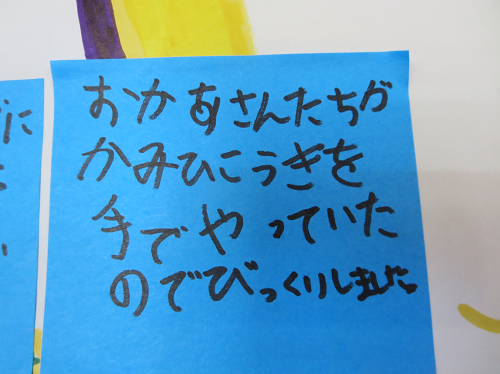 おかあさんたちが
かみひこうきを
手でやっていた
のでびっくりしました。
に